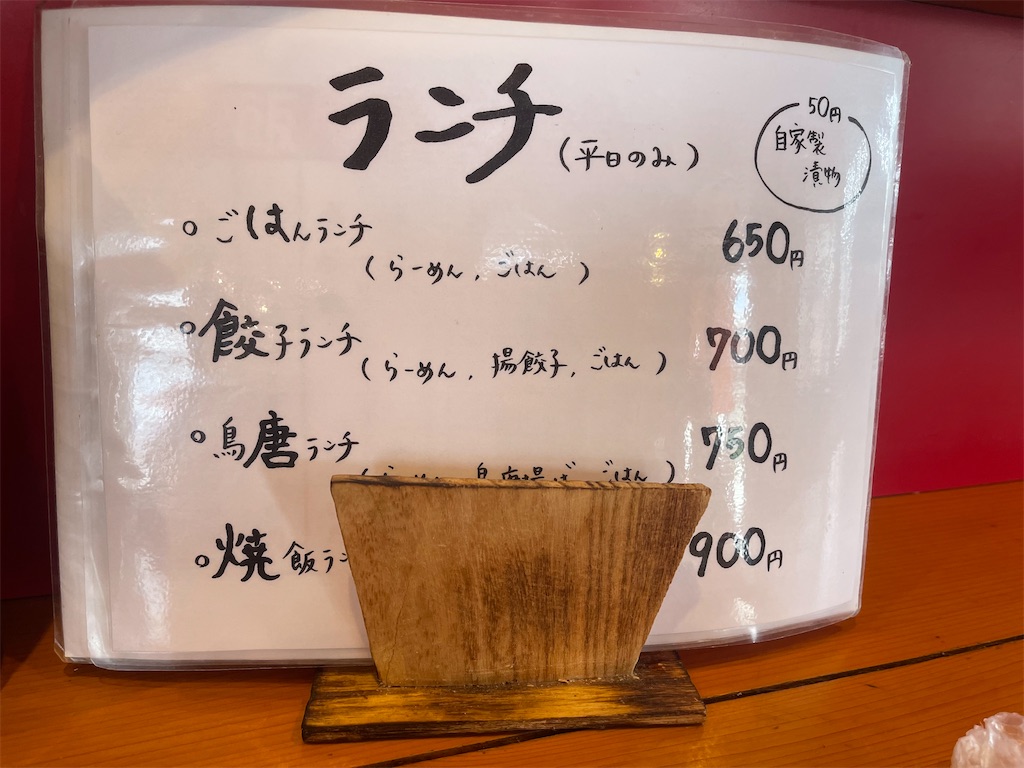 ランチ(平日のみ)
50円
自家製
漬物
○ごはんランチ 650円
(らーめん,ごはん)
○餃子ランチ 700円
(らーめん,揚餃子,ごはん)
○鳥唐ランチ 750円
(らーめん, ごはん)
○焼飯ラン 900円